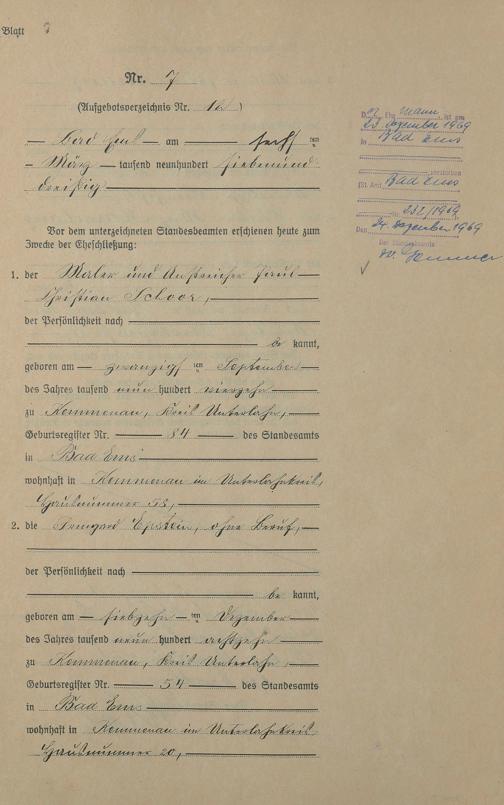 Blatt
Nr. 7
(Aufgebotsverzeichnis Nr. 12)
— Bad Ems — am — sechs ten
— März — tausend neunhundert siebenund-
dreißig —
Vor dem unterzeichneten Standesbeamten erschienen heute zum
Zwecke der Eheschließung:
1. der Maler und Anstreicher Paul —
Christian Schoor, —
der Persönlichkeit nach —
— be kannt,
geboren am — zwanzigsten September —
des Jahres tausend neun hundert vierzehn —
zu Kemmenau, Kreis Unterlahn, —
Geburtsregister Nr. — 84 — des Standesamts
in Bad Ems —
wohnhaft in Kemmenau im Unterlahnkreis,
Hausnummer 58, —
2. die Irmgard Epstein, ohne Beruf, —
der Persönlichkeit nach —
— be kannt,
geboren am — siebzehn — ten Dezember —
des Jahres tausend neun hundert achtzehn —
zu Kemmenau, Kreis Unterlahn —
Geburtsregister Nr. — 54 — des Standesamts
in Bad Ems —
wohnhaft in Kemmenau im Unterlahnkreis
Hausnummer 20, —
D. Ehemann ist am
23. Dezember 1969
in Bad Ems
verstorben
(St. Amt Bad Ems
Nr. 231/1969
Den 24. Dezember 1969
Der Standesbeamte